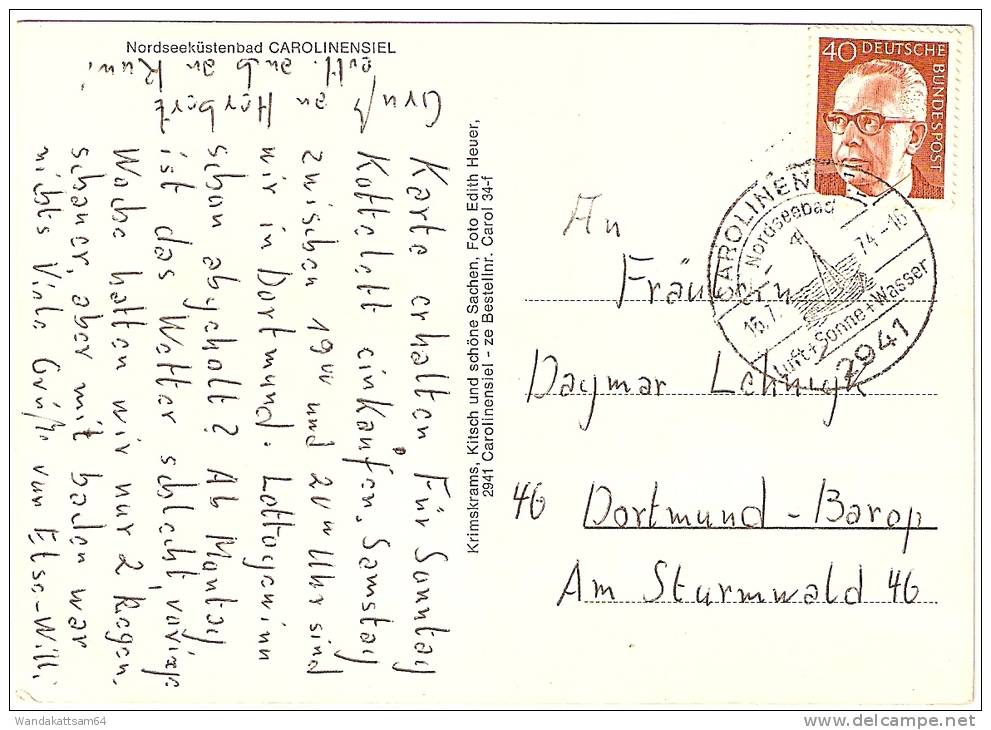 Nordseeküstenbad CAROLINENSIEL
Gruß
an Herbert
evtl. auch an
Karte erhalten Für Sonntag
Kottelett einkaufen, Samstag
zwischen 19°° und 20°° Uhr sind
wir in Dortmund. Lottogewinn
schon abgeholt? Ab Montag
ist das Wetter schlecht, vorige
Woche hatten wir nur 2 Regen-
schauer, aber mit baden war
nichts Viele Grüße von Else-Willi
Krimskrams, Kitsch und schöne Sachen, Foto Edith Heuer,
2941 Carolinensiel - ze Bestellnr. Carol 34-f
40 DEUTSCHE BUNDESPOST
Nordseebad
16.7.74-16
Luft+Sonne+Wasser
2941
An
Fräulein
Dagmar Lehnigk
46 Dortmund-Barop
Am Sturmwald 46
Wandakattsam64
delcampe.net